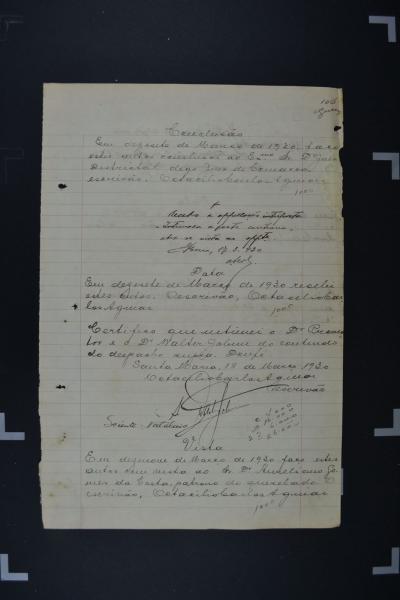 106
Conclusão
Em dezesete de Março de 1930, faço
estes autos conclusos ao Exmo. Sr. Dr. Juiz
Districtal digo Juiz de Comarca. O
escrivão, Octacilio Carlos Aguiar
1000
Recebo a appellação interposta
Intimada a parte contraria,
dê-se vista ao appte
17.3.930
Data
Em dezesete de Março de 1930 recebi
estes autos. O escrivão, Octacilio Car
los Aguiar
1000
Certifico que intimei o Dr. Promo
tor e o Dr. Walter Jobim do conteudo
do despacho supra. Dou fé
Santa Maria, 18 de Março 1930
Octacilio Carlos Aguiar
escrivão
Sciente
Vista
Em dezenove de Março de 1930 faço estes
autos com vista ao Sr. Dr. Aureliano Go
mes da Costa, patrono do querelado. O
escrivão, Octacilio Carlos Aguiar
1000